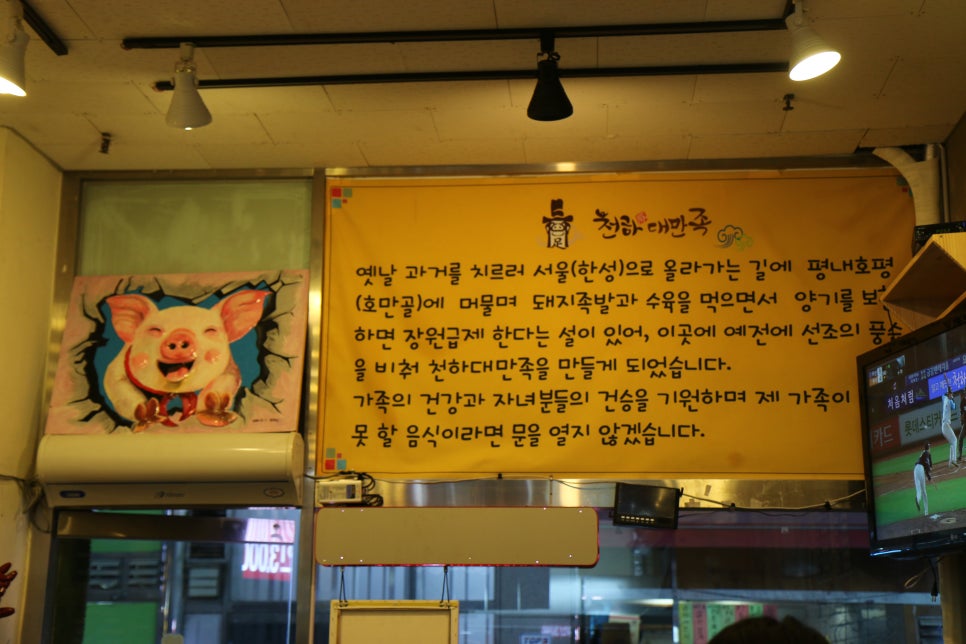 천하대만족
옛날 과거를 치르러 서울(한성)으로 올라가는 길에 평내호평
(호만골)에 머물며 돼지족발과 수육을 먹으면서 양기를 보
하면 장원급제 한다는 설이 있어, 이곳에 예전에 선조의 풍습
을 비춰 천하대만족을 만들게 되었습니다.
가족의 건강과 자녀분들의 건승을 기원하며 제 가족이
못 할 음식이라면 문을 열지 않겠습니다.
처음처럼
카드
롯데스티커